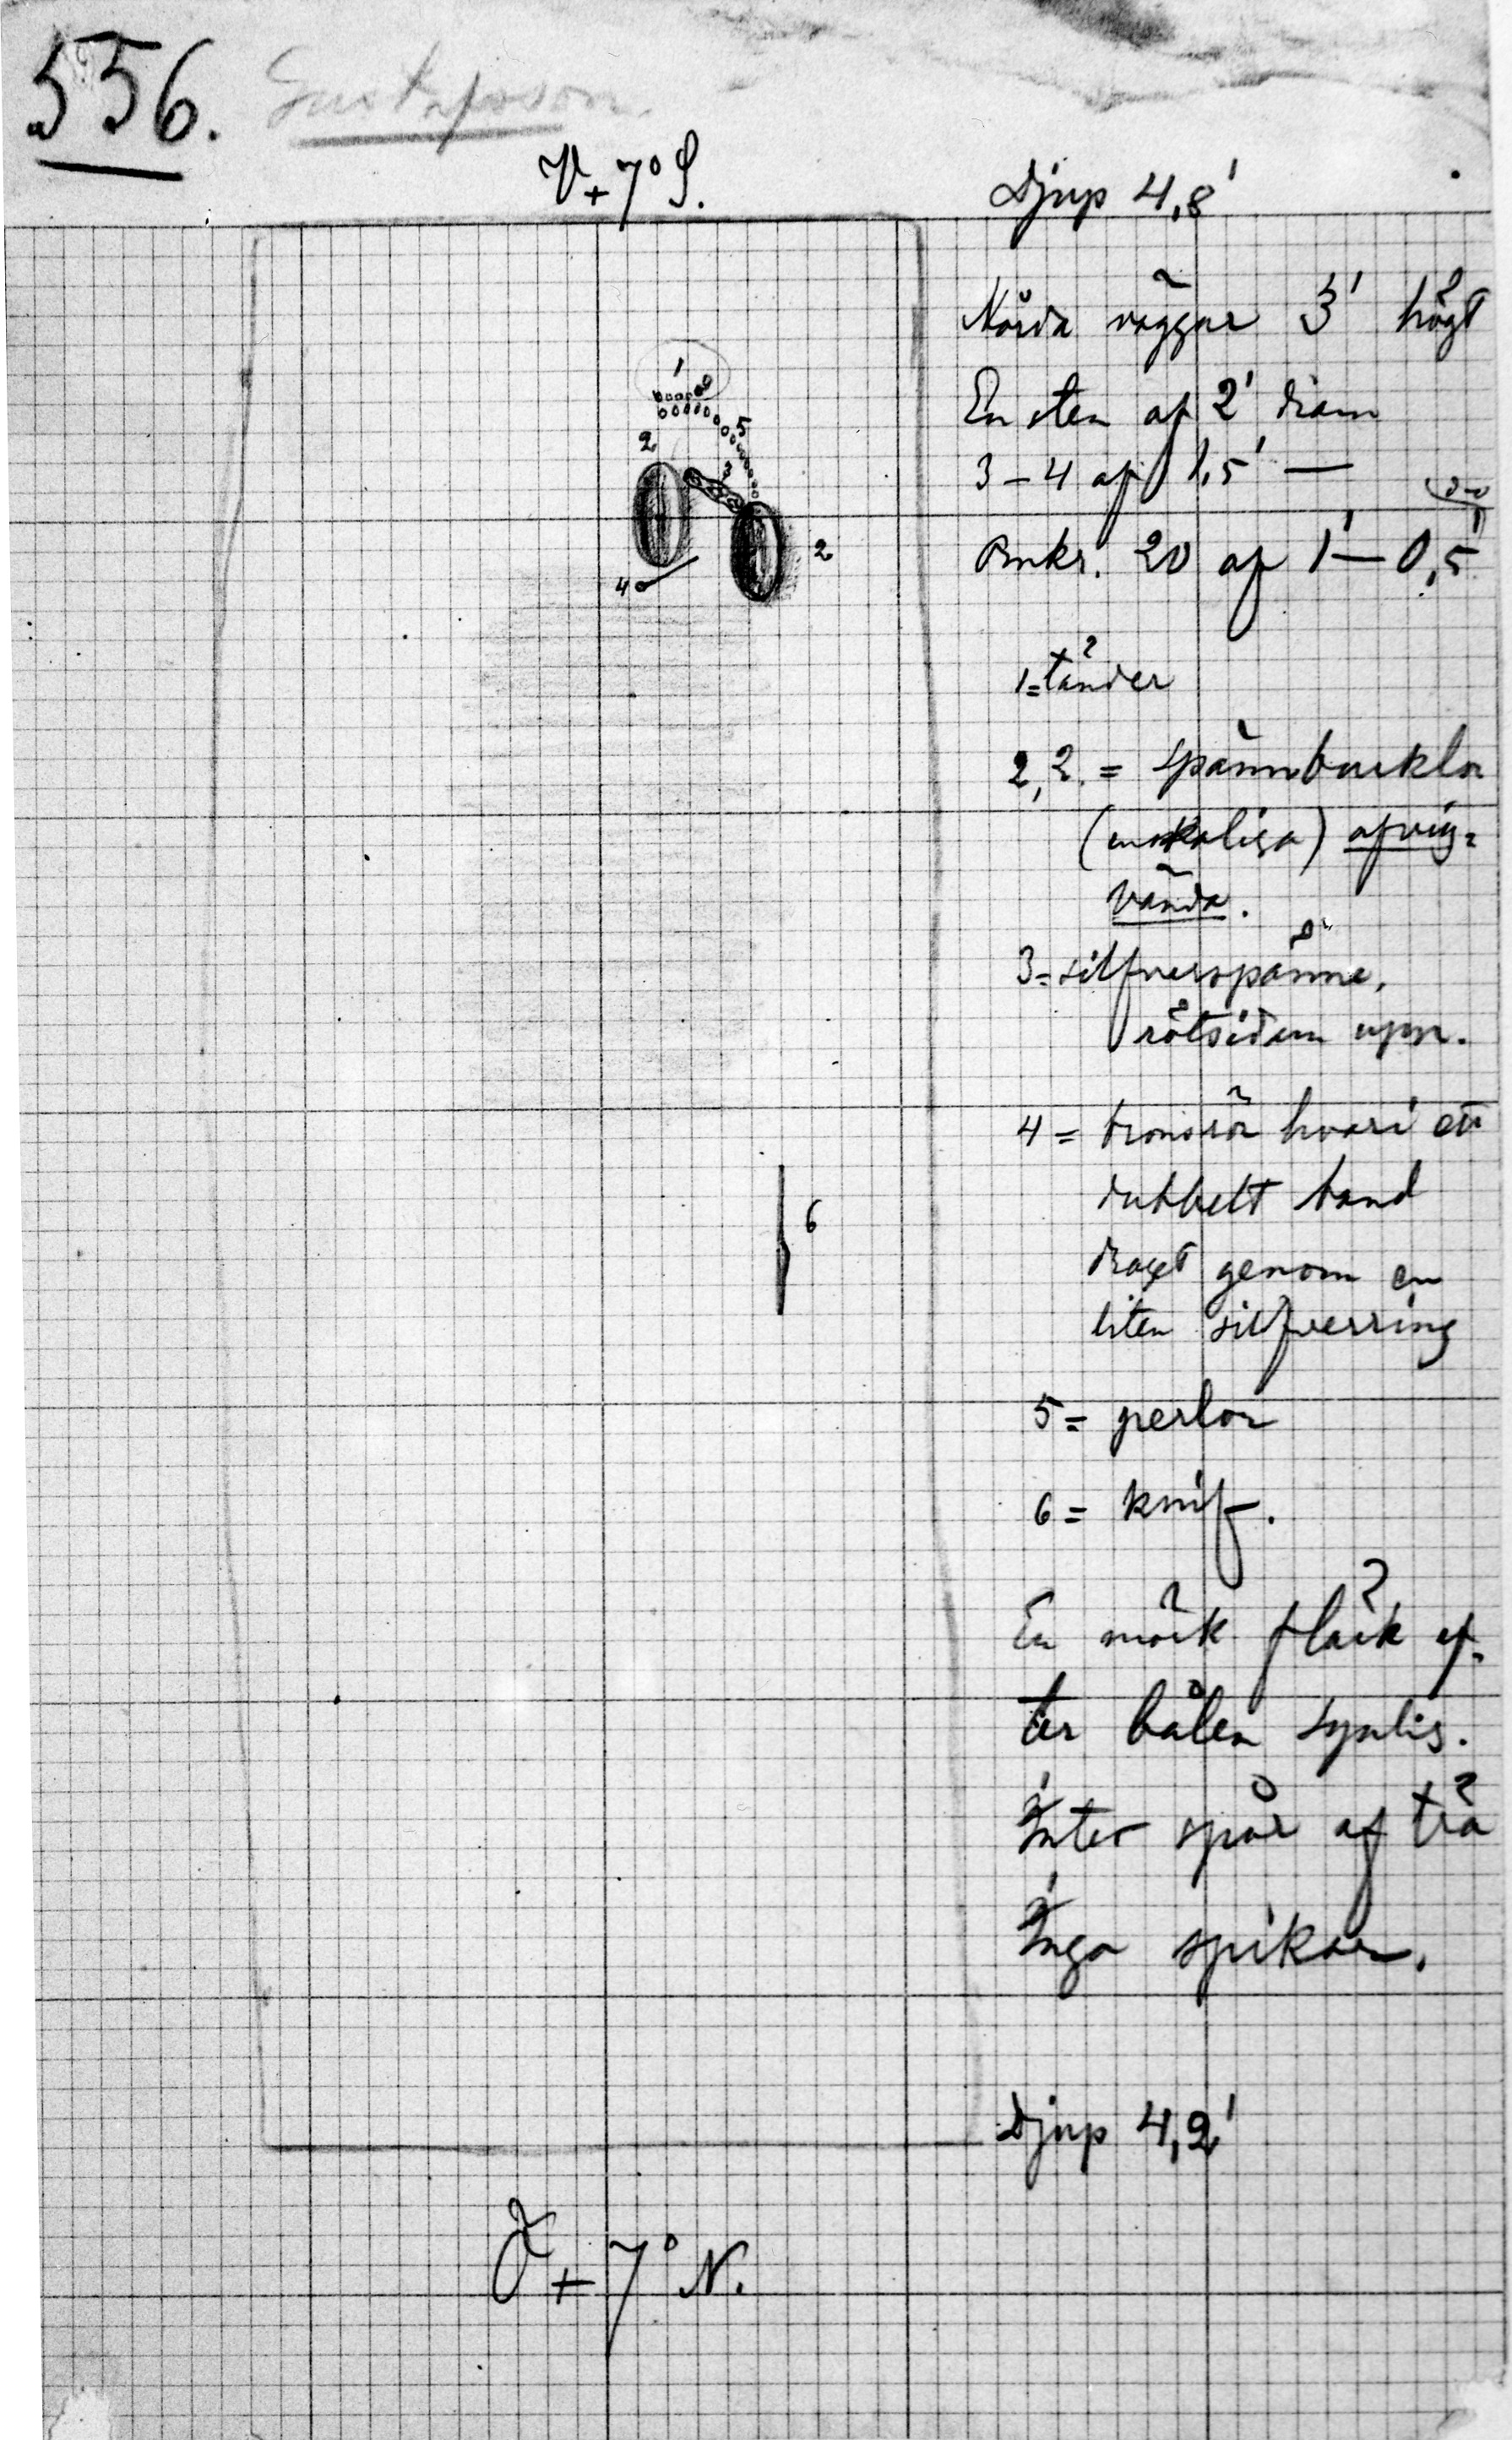 556. Gustafson.
V + 7° S.
Djup 4,8'
Hårda väggar 3' högt
En sten af 2' diam
3 – 4 af 1,5' —
Omkr. 20 af 1' – 0,5'
1 = tänder
2, 2. = spännbucklor
(enskaliga) afvig=
vända.
3 = silfverspänne,
rätsidan upp.
4 = bronsrör hvari ett
dubbelt band
draget genom en
liten silfverring
5 = perlor
6 = knif.
En mörk fläck ef-
ter bålen synlig.
Intet spår af trä
Inga spikar.
Djup 4,2'
Ö + 7° N.
1
2
5
3
2
4
6